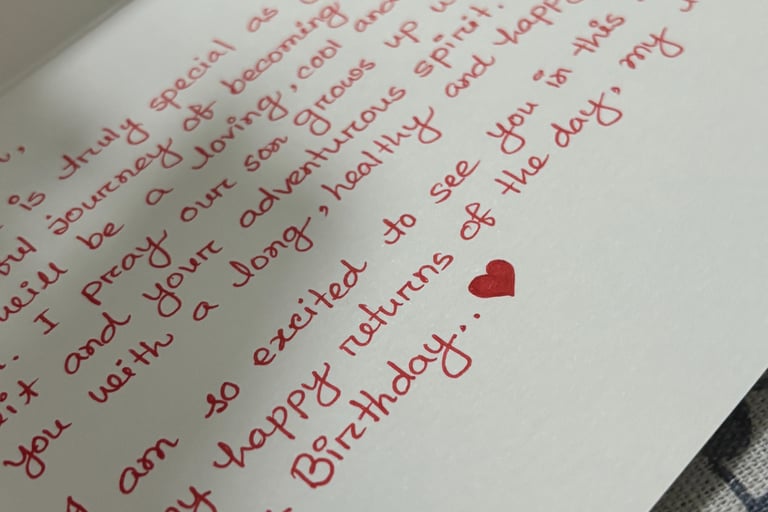 is truly special as
journey of becoming
will be a loving, cool and
I pray our son grows up
and your adventurous spirit.
you with a long, healthy and happy
I am so excited to see you in this
happy returns of the day, my
Birthday.. ♥